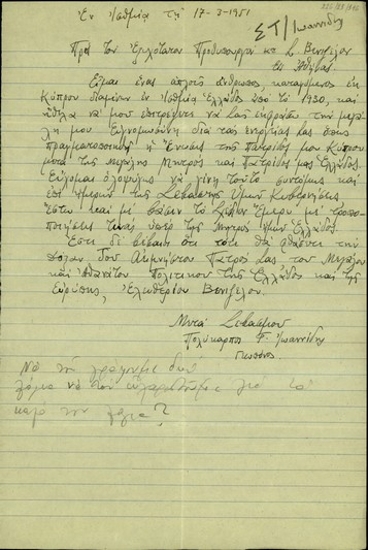 Ἐν Ἰσθμίᾳ τῇ 17-3-1951
ΣΤ/Ἰωαννίδης
Πρὸς τὸν Ἐξοχώτατον Πρωθυπουργὸ κ. Σ. Βενιζέλον
Εἰς Ἀθήνας
Εἶμαι ἕνας ἁπλοῦς ἄνθρωπος, καταγόμενος ἐκ
Κύπρου διαμένων ἐν Ἰσθμίᾳ Ἑλλάδος ἀπὸ τὸ 1930, καὶ
ἤθελα νὰ μοῦ ἐπιτρέψητε νὰ Σᾶς ἐκφράσω τὴν μεγά-
λη μου Εὐγνωμοσύνη διὰ τὰς ἐνεργείας Σας ὅπως
πραγματοποιηθῇ ἡ Ἕνωσις τῆς Πατρίδος μου Κύπρου
μετὰ τῆς Μεγάλης Μητρὸς καὶ Πατρίδος μας Ἑλλάδος.
Εὔχομαι ὁλοψύχως νὰ γίνῃ τοῦτο συντόμως καὶ
ἐπὶ ἡμερῶν τῆς Σεβαστῆς Ὑμῶν Κυβερνήσεως
ἔστω καὶ μὲ βάσιν τὸ
ποιήσεις τινὰς ὑπὲρ τῆς Μητρὸς ἡμῶν Ἑλλάδος.
Ἔστε δὲ βέβαιοι ὅτι τότε θὰ φθάσητε τὴν
δόξαν τοῦ Ἀειμνήστου Πατρός Σας τοῦ Μεγάλου
καὶ Ἀθανάτου Πολιτικοῦ τῆς Ἑλλάδος καὶ τῆς
Εὐρώπης, Ἐλευθερίου Βενιζέλου.
Μετὰ Σεβασμοῦ
Πολύκαρπος Γ. Ἰωαννίδης
Νὰ τῇ γράψουμε δυὸ
λόγια νὰ τὸν εὐχαριστήσωμε γιὰ τὰ
καλά του λόγια?